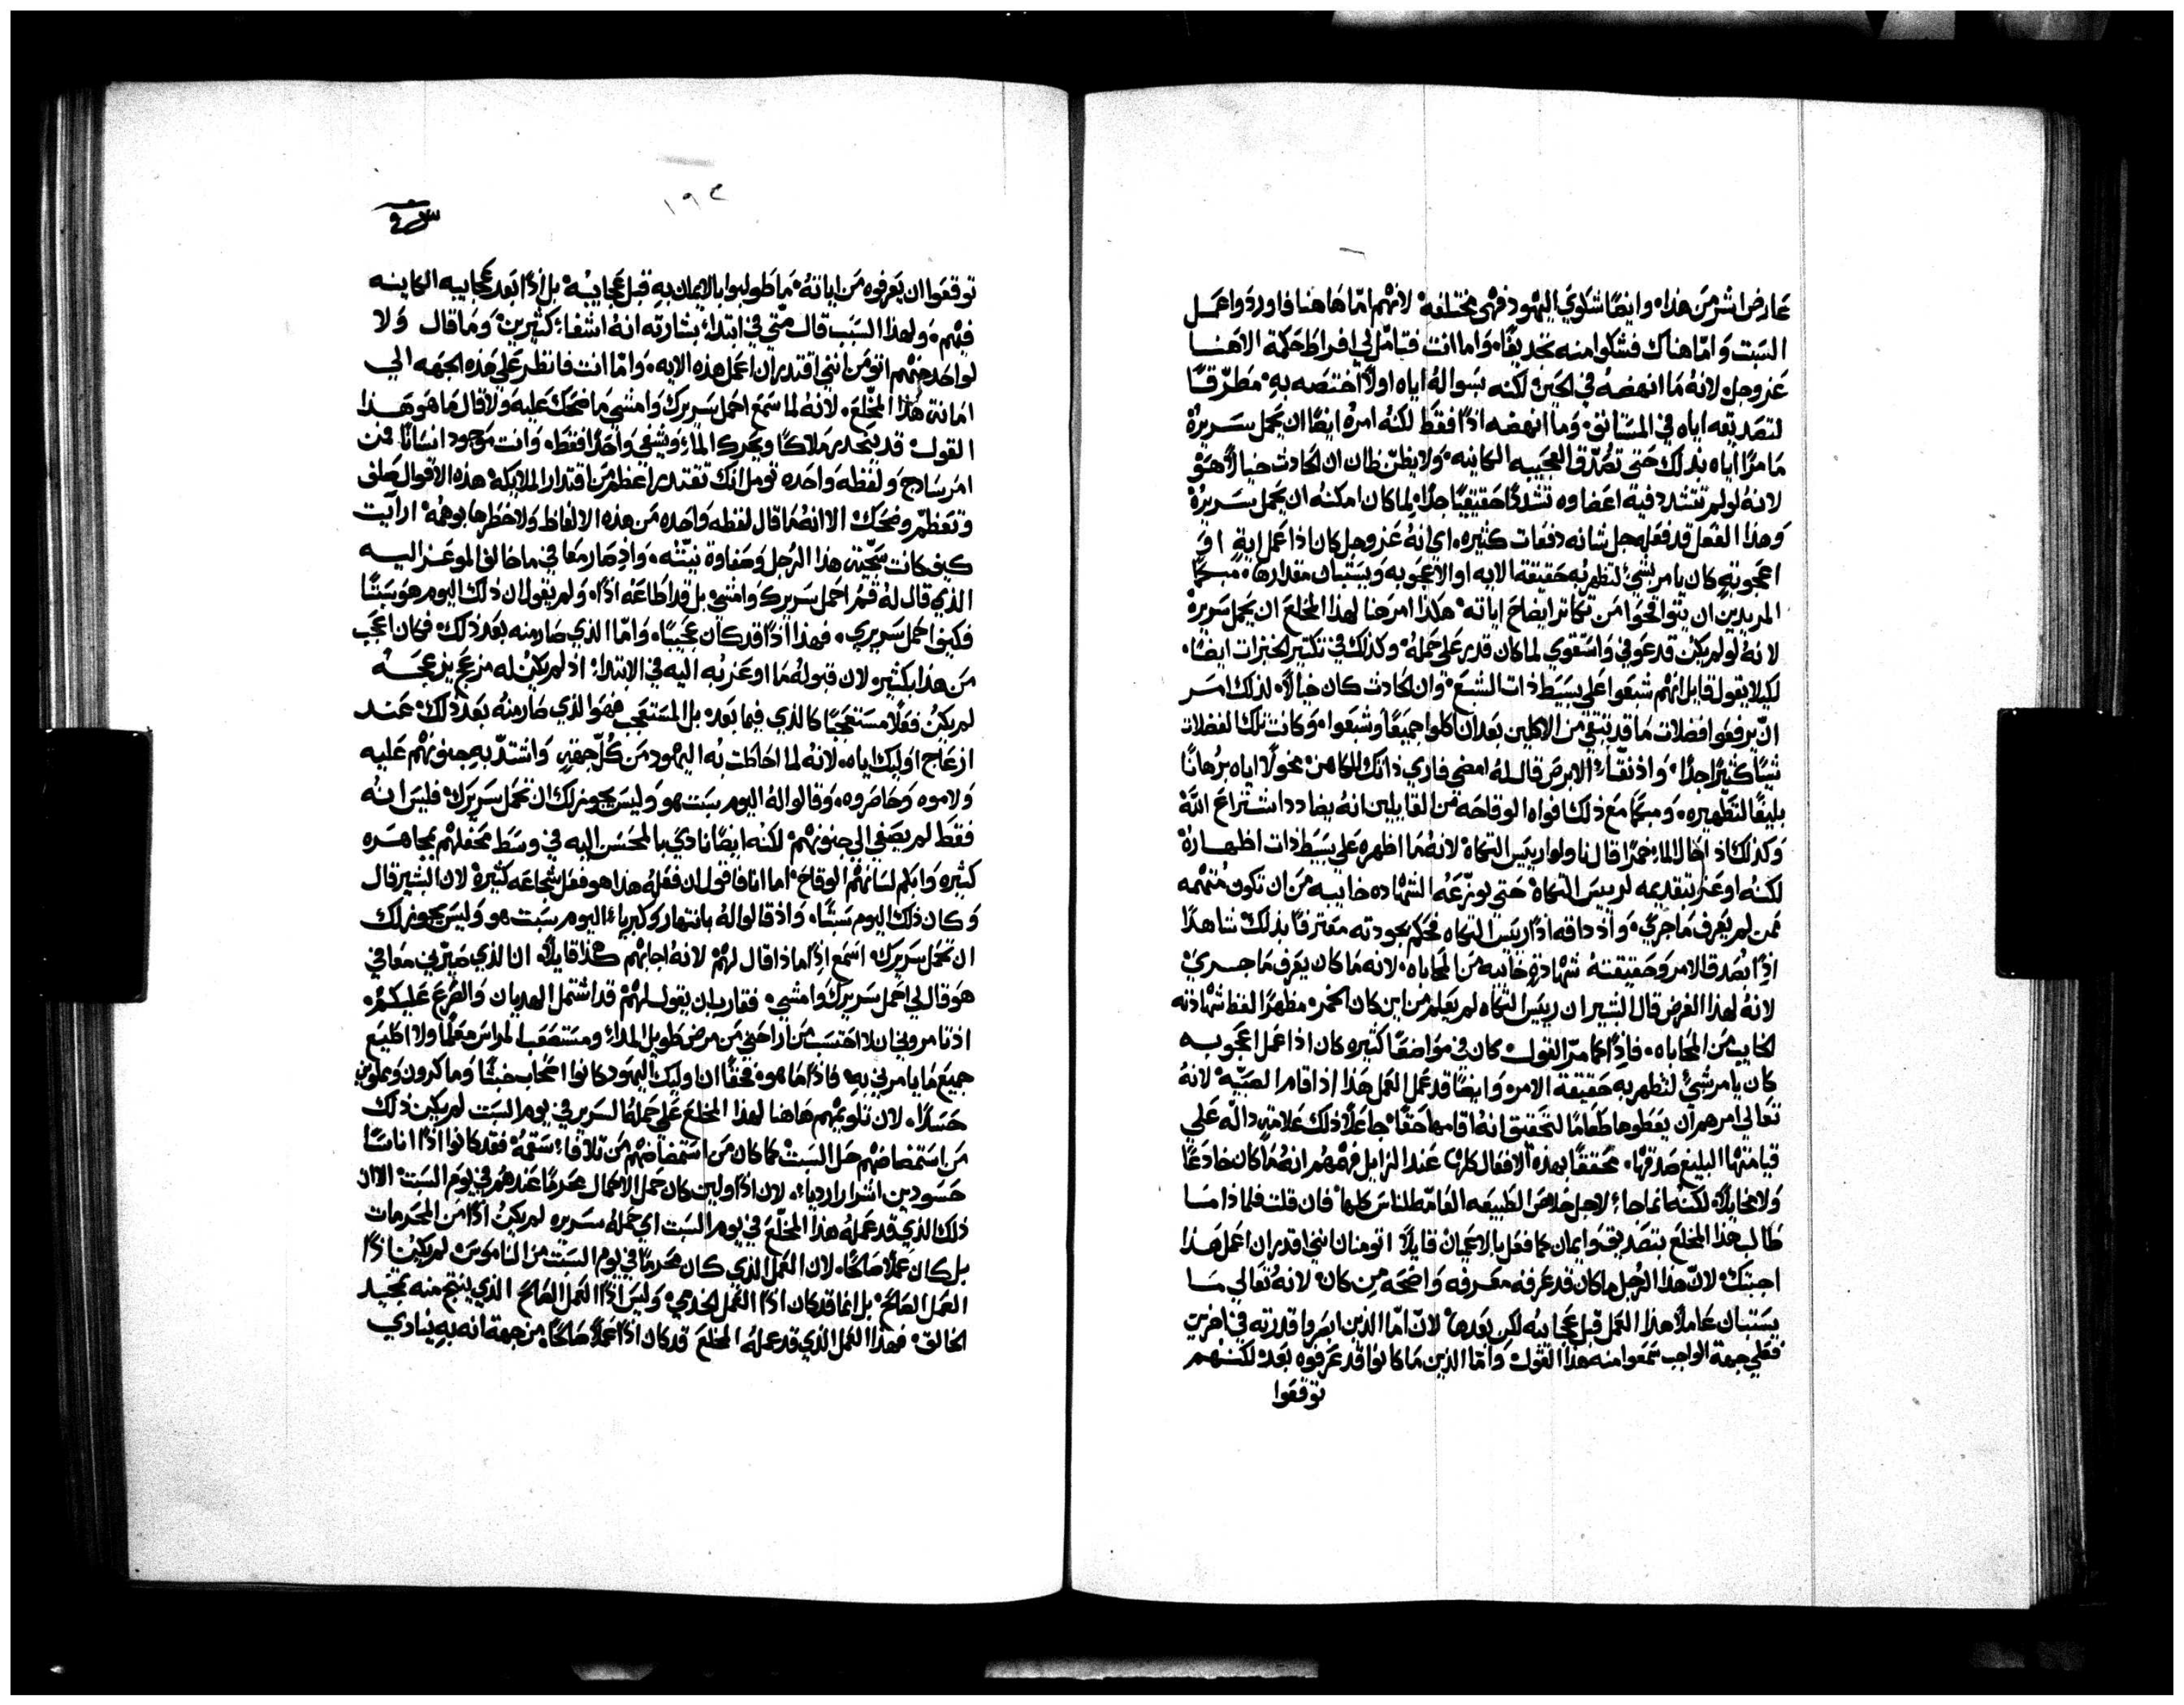 عارض اشر من هذا، وايضًا شكوي اليهود فهي مختلفة لانهم امّا هاهنا فاوردوا عمل
السبت وامّا هناك فشكوا منه تجديفًا، واما انت فتامّل لي افراط حكمة الاهنا
عز وجل لانهُ ما انهضهُ في الحين لكنه بسواله اياه اولًا اختصه به مطرّقًا
لتصديقه اياه في المستانق، وما انهضه اذًا فقط لكنهُ امرهُ ايضًا ان يحمل سريرهُ
مامرًا اياه بذلك حتى تصُدّق العجيبه الكاينه، ولا يظنّ ظان ان الحادث خيالًا هوَ
لانهُ لو لم تتشدد فيه اعضاوه تشددًا حقيقيًا جدًا، لما كان امكنهُ ان يحمل سريرهُ
وهذا الفعل قد فعله جل شانه دفعات كثيره، اي انهُ عز وجل كان اذا عمل ايةٍ اوَ
اعجوبةٍ كان يامر بشيءٍ لتظهر به حقيقة الايه او الاعجوبه ويستبان مقدارها، مبكمًا
المريدين ان يتواقحوا من تكاثر ايضاح اياته هكذا امر هنا لهذا المخلع ان يحمل سريرهُ
لانهُ لو لم يكن قد عوفي واستقوي لما كان قدر على حمله، وكذلك في تكثير الخبزات ايضًا،
لكيلا يقول قايل انهم شبعوا على بسيط ذات الشبع، وان الحادث كان خيالًا، لذلك امر
انّ يرفعوا فضلات ما قد تبقي من الاكلين بعد ان اكلوا جميعًا وشبعوا، وكانت تلك الفضلات
شيًا كثيرًا جدًا، واذ نقّا الابرص قال له امضي فاري ذاتك للكاهن مخولًا اياه برهانًا
بليغًا لتطهيره، ومبكمًا مع ذلك افواه الوقاحه من القايلين انهُ يضادد اشتراع اللهَ
وكذلك اذ احال الماء خمرًا قال ناولوا رييس التكاة لانهُ ما اظهره على بسيط ذات اظهارهُ
لكنُه اوعز بتقديمه لرييس التكاة حتى يوزّعهُ الشهاده خاييه من ان تكون متهمه
ممن لم يعرف ما جري، واذ داقه اذًا رييس التكاه فحكم بجودته معترفًا بذلك شاهدًا
اذًا بصدق الامر وحقيقتهُ شهادةٍ خاييه من المحاباه، لانه ما كان يعرف ما جري
لانهُ لهذا الغرض قال البشير ان رييس التكاه لم يعلم من اين كان الخمر، مظهرًا لفظ شهادته
الخايب من المحاباه، فاذًا كما مرّ القول كان في مواضعًا كثيره كان اذا عمل اعجوبه
كان يامر بشيءٍ لتظهر به حقيقة الامر، وايضًا قد عمل العمل هذا اذ اقام الصبيّه لانهُ
تعالي امرهم ان يعطوها طعامًا لتحقيق انهُ اقامها حقًا، جاعلًا ذلك علامةٍ دالّه على
قيامتها البليغ صدقها، محققًا بهذه الافعال كلها عند الزايل فهمهم انهُ ما كان خادعًا
ولا مخايلًا، لكنه انما جاء لاجل خلاص الطبيعه العامّه للناس كلها، فان قلت فلماذا ما
طالب هذا المخلع بتصديق وايمان كما فعل بالاعميان قايلًا اتومنان انني اقدر ان اعمل هذا
اجبتك لانّ هذا الرجل ما كان قد عرفه معرفه واضحه من كان، لانهُ تعالي ما
يستبان عاملًا هذا العمل قبل عجايبه لكن بعدها، لانّ امّا الذين ابصروا قدرته في اخرين
فعلى جهة الواجب سمعوا منه هذا القول، وامّا الذين ما كانوا قد عرفوه بعد لكنهم
توقعوا
١٩٣
توقعوا ان يعرفوه من اياته، ما طولبوا بالايمان به قبل عجايبه، بل اذًا بعد عجايبه الكاينه
فيهم، ولهذا السبب قال متي في ابتداء بشارته انهُ اشفا كثيرين، وما قال ولا
لواحد منهم اتومن انني اقتدر ان اعمل هذه الايه، وامّا انت فانظر على هذه الجهه الي
امانة هذا المخلع، لانهُ لما سمع احمل سريرك وامشي ما ضحك عليه ولا قال ما هو هذا
القول، قد ينحدر ملاكًا ويحرك الماء ويشفي واحدًا فقط، وانت موجود انسانًا فمن
امر ساذج ولفظه واحده تومل انك تقتدر اعظم من اقتدار الملايكه هذه الاقوال صلف
وتعظّم وضحك، الا انهُ ما قال لفظه واحده من هذه الالفاظ ولا خطرها بوهمه، ارايت
كيف كانت سجّية هذا الرجل وصفاوة نيّته، واذ صار معافي ما خالف الموعز اليه
الذي قال لهُ قم احمل سريرك وامشي، بل قد اطاعه اذًا، ولم يقول ان ذلك اليوم هو سبتًا
فكيف احمل سريري، فهذا اذًا قد كان عجيبًا، وامّا الذي صار منه بعد ذلك فكان اعجب
من هذا بكثير، لان قبوله ما اوعز به اليه في الابتداء اذ لم يكن له من يحجزه
لم يكن فعلًا مستعجبًا كالذي فيما بعد، بل المستعجب فهو الذي صار منهُ بعد ذلك، عند
ازعاج اوليك اياه، لانهُ لما احاطت به اليهود من كُلّ جهةٍ واشتدّ به جنونهم عليه
ولاموه وحاصروه، وقالوا لهُ اليوم سبت هو وليس يجوز لك ان تحمل سريرك، فليس انهُ
فقط لم يصغي الي جنونهم، لكنه ايضًا نادي بالمحسن اليه في وسط محفلهم بمجاهره
كثيره وابكم لسانهم الوقاح، اما انا فاقول ان فعلهُ هذا هو فعل شجاعه كثيرة لان البشير قال
وكان ذلك اليوم سبتًا، واذ قالوا لهُ بانتهار وكبرياء اليوم سبت هو وليس يجوز لك
ان تحمل سريرك، اسمع اذًا ماذا قال لهم، لانهُ اجابهم هكذا قايلًا، ان الذي صيّرني معافي
هو قال لي احمل سريرك وامشي، فقارب ان يقول لهم قد اشتمل الهديان والصرع عليكم،
اذ تامرونني ان لا احتسب من اراحني من مرض طويل المداء ومستصعب المراس معلمًا ولا اطيع
جميع ما يامرني به، فاذًا ما هو، فحقًا ان اوليك اليهود كانوا اصحاب خبثًا وماكرون ومملوين
حسدًا، لان تلويمهم هاهنا لهذا المخلع على حمله السرير في يوم السبت لم يكن ذلك
من استمضاضهم حل السبت كما كان من استمضاضهم من تلافاء سقمه، فقد كانوا اذًا اناسًا
حسودين اشرار اردياء، لان اذًا ولين كان حمل الاحمال محرمًا عندهم في يوم السبت، الا ان
ذلك الذي قد عمله هذا المخلّع في يوم السبت اي حملهُ سريره لم يكن اذًا من المحرمات
بل كان عملًا صالحًا، لان العمل الذي كان محرمًا في يوم السبت من الناموس، لم يكن اذًا
العمل الصالح، بل انما قد كان اذًا العمل الخدمي، وليس اذًا العمل الصالح الذي ينتج منه تمجيد
الخالق، فهذا العمل الذي قد عمله المخلع قد كان اذًا عملًا صالحًا، من جهة انه به ينادي